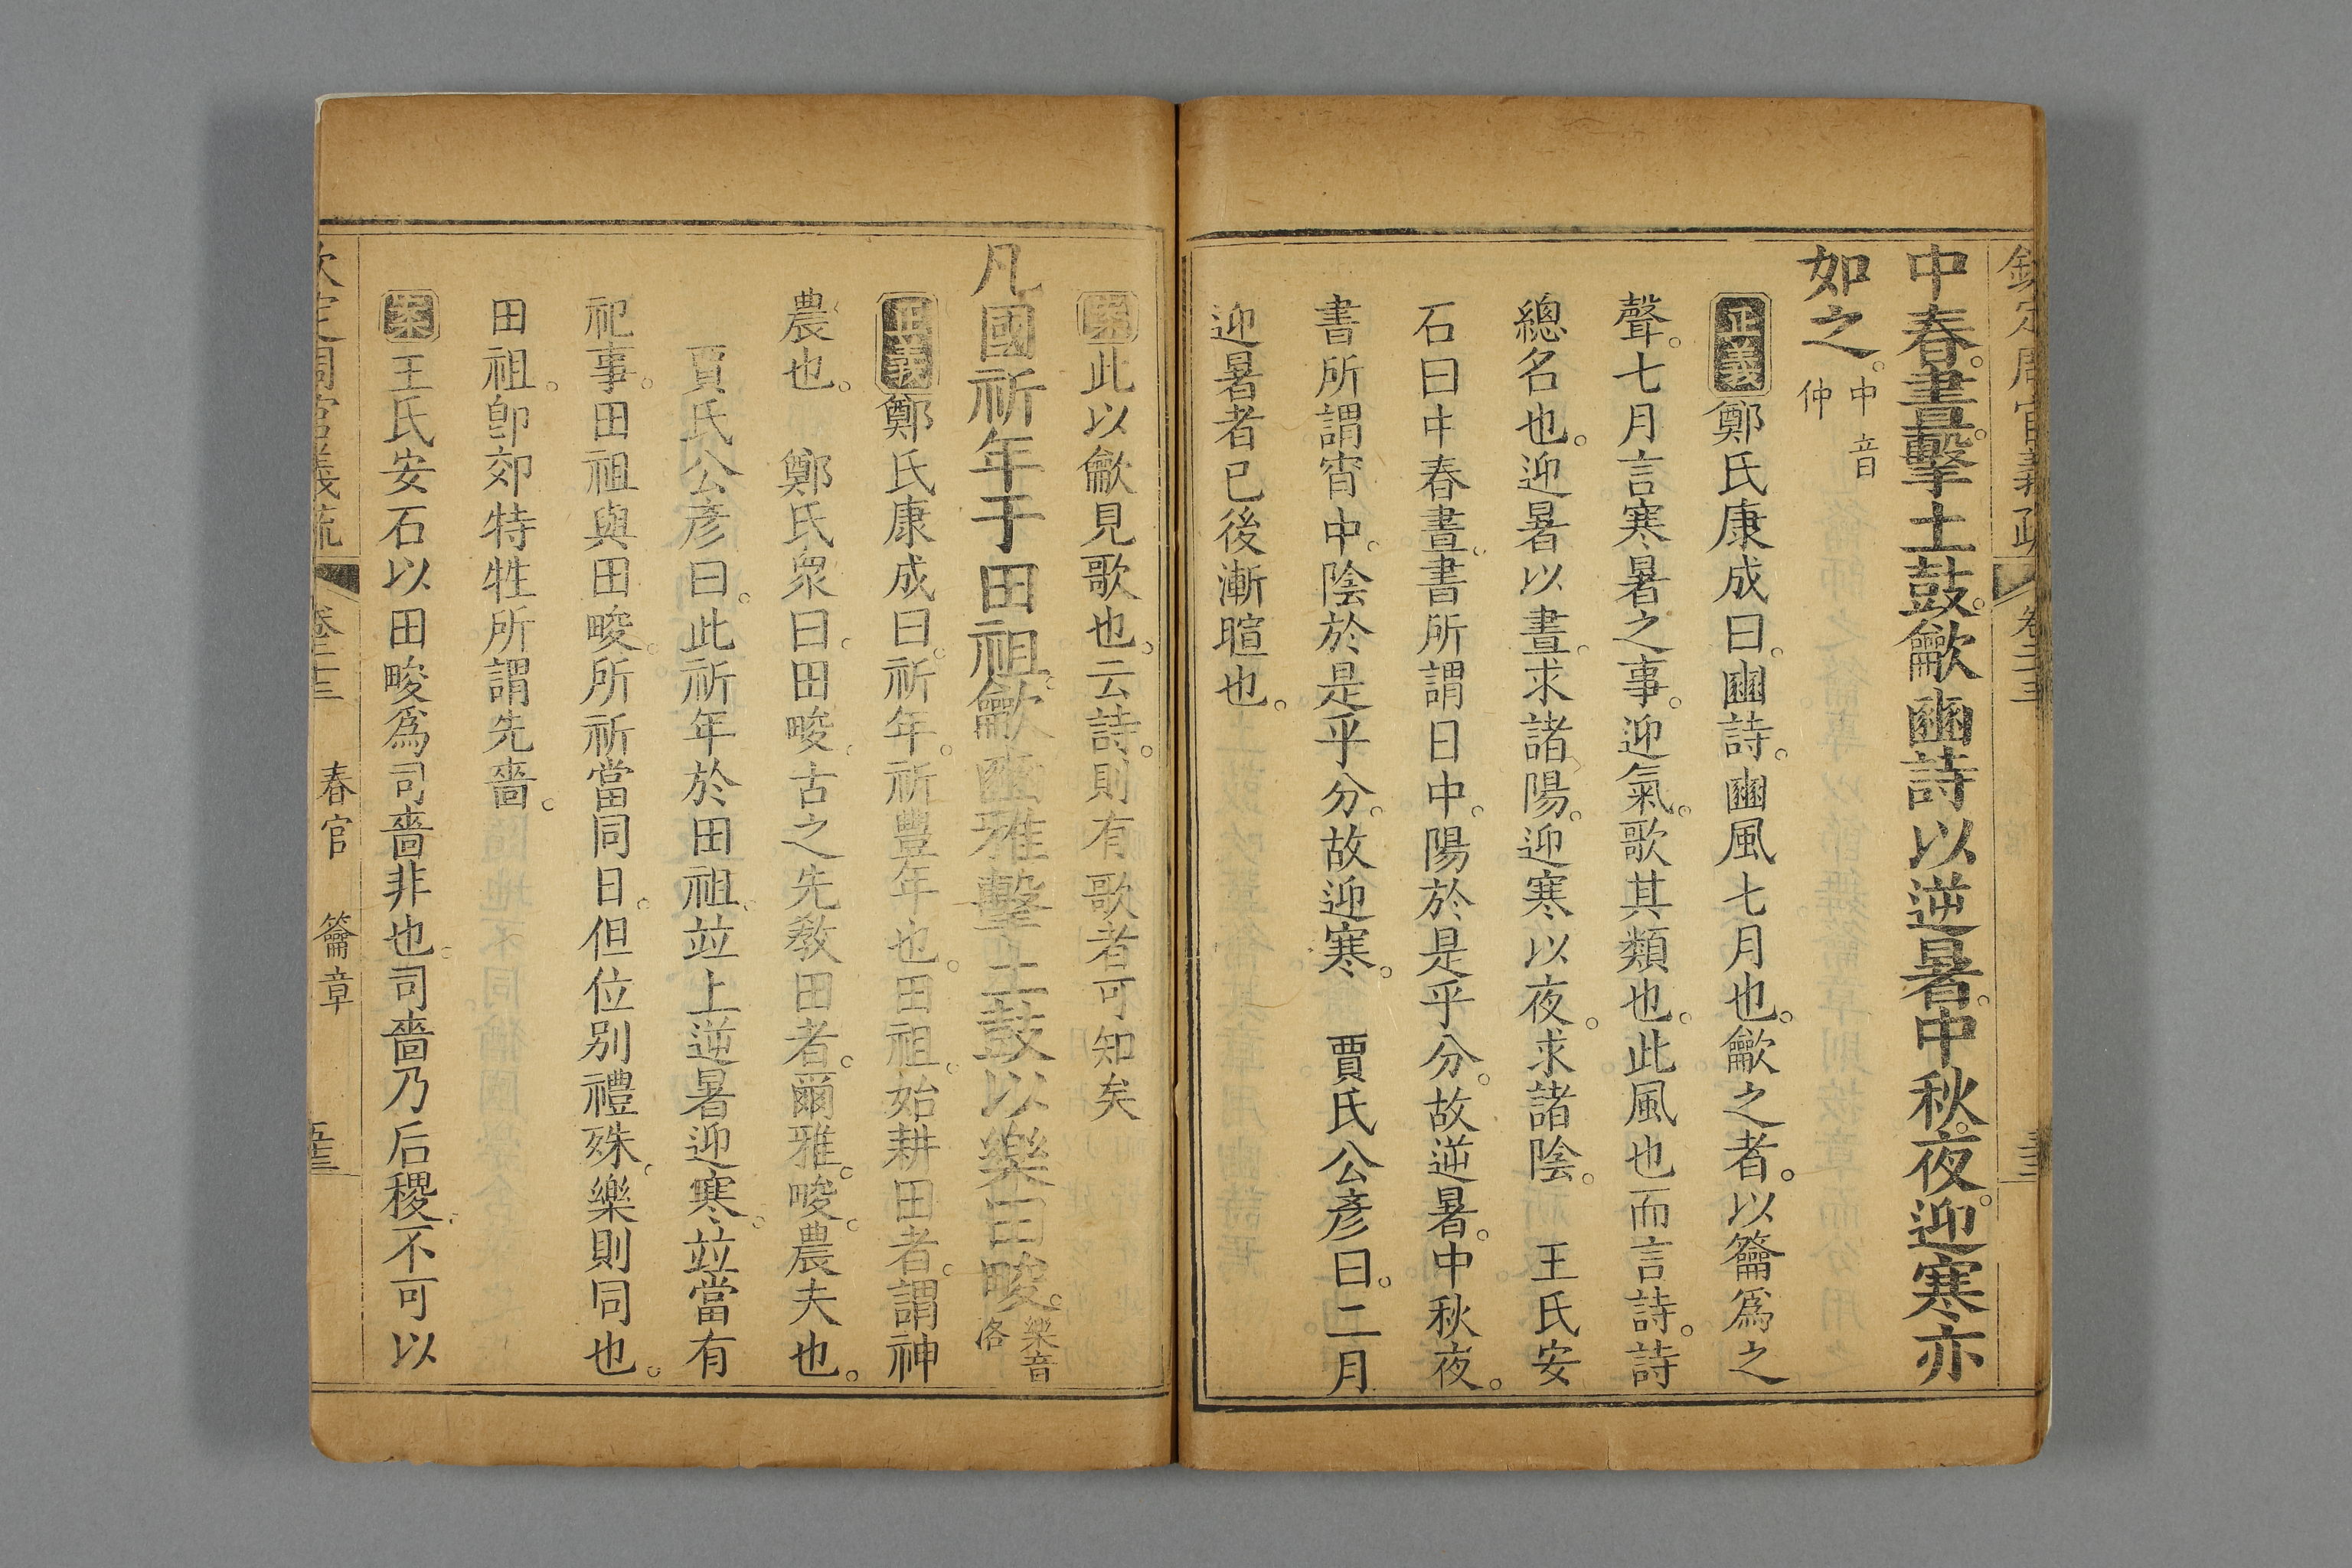 欽定周官義疏 卷二十三
中春。晝。擊土鼓。龡豳詩以逆暑。中秋。夜。迎寒亦
如之。中音仲
正義鄭氏康成曰。豳詩。豳風七月也。龡之者。以籥爲之
聲。七月言寒暑之事。迎氣。歌其類也。此風也而言詩。詩
總名也。迎暑以晝。求諸陽。迎寒以夜。求諸陰。 王氏安
石曰中春晝。書所謂日中。陽於是乎分。故逆暑。中秋夜。
書所謂宵中。陰於是乎分。故迎寒。 賈氏公彥曰。二月
迎暑者已後漸暄也。
案此以龡見歌也。云詩。則有歌者可知矣
凡國祈年于田祖。龡豳雅擊土鼓以樂田畯。樂音洛
正義鄭氏康成曰。祈年。祈豐年也。田祖。始耕田者。謂神
農也。 鄭氏衆曰。田畯。古之先敎田者。爾雅。畯。農夫也。
賈氏公彥曰。此祈年於田祖。竝上逆暑迎寒。竝當有
祀事。田祖與田畯。所祈當同日。但位別禮殊。樂則同也。
田祖。卽郊特牲所謂先嗇。
案王氏安石以田畯爲司嗇非也。司嗇乃后稷。不可以
欽定周官義疏 卷二十三 春官 籥章